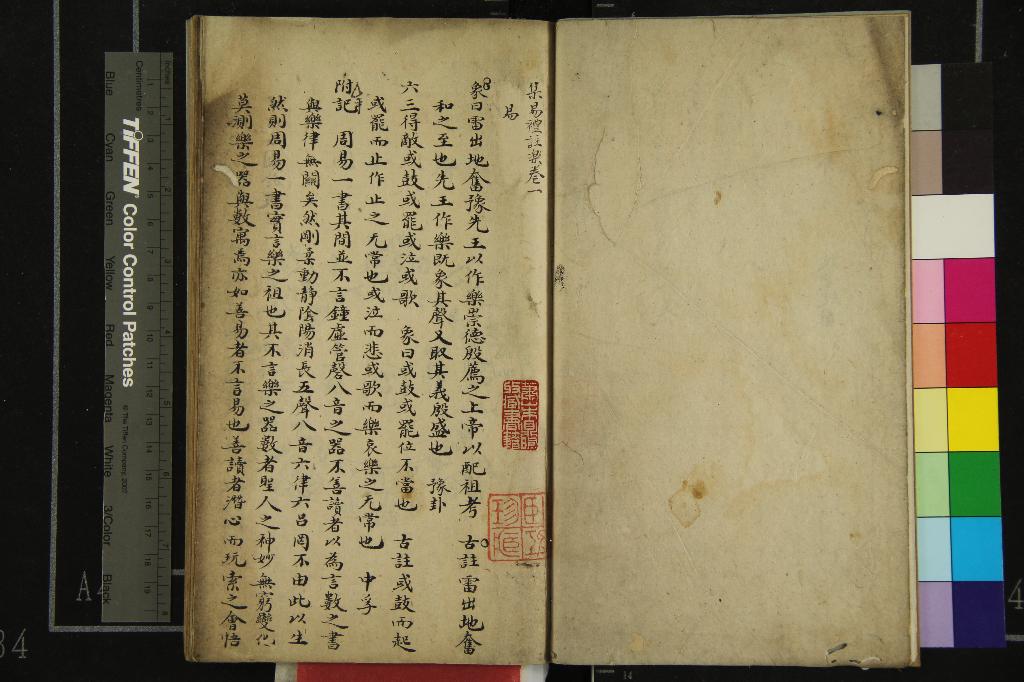 集易禮註樂卷一
易
象曰雷出地奮豫先王以作樂崇德殷薦之上帝以配祖考 古註雷出地奮
和之至也先王作樂既象其聲又取其義殷盛也 豫卦
六三得敵或鼓或罷或泣或歌 象曰或鼓或罷位不當也 古註或鼓而起
或罷而止作止之无常也或泣而悲或歌而樂哀樂之无常也 中孚
附記 周易一書其間並不言鐘虛管磬八音之器不善讀者以為言數之書
與樂律無關矣然剛柔動静陰陽消長五聲八音六律六呂罔不由此以生
然則周易一書實言樂之祖也其不言樂之器數者聖人之神妙無窮變化
莫測樂之器與數寓焉亦如善易者不言易也善讀者潛心而玩索之會悟
Inches
Centimetres
TIFFEN Color Control Patches
© The Tiffen Company, 2007
Blue Cyan Green Yellow Red Magenta White 3/Color Black
A4
34
4
14